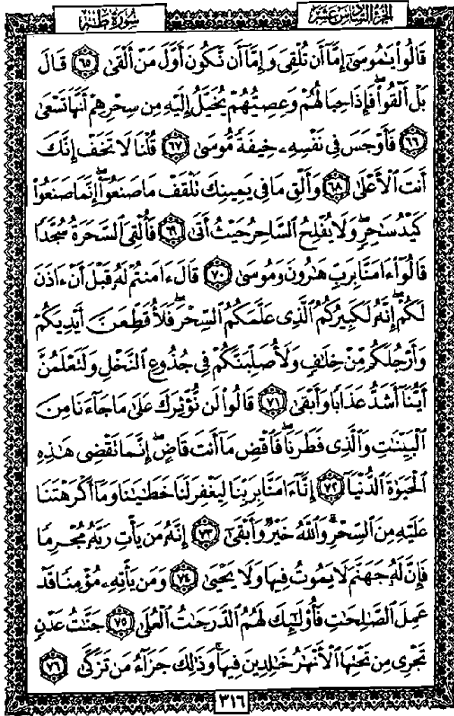 سُورَةُ طه
الجزء السادس عشر
قَالُوا۟ يَـٰمُوسَىٰٓ إِمَّآ أَن تُلْقِىَ وَإِمَّآ أَن نَّكُونَ أَوَّلَ مَنْ أَلْقَىٰ ٦٥ قَالَ
بَلْ أَلْقُوا۟ ۖ فَإِذَا حِبَالُهُمْ وَعِصِيُّهُمْ يُخَيَّلُ إِلَيْهِ مِن سِحْرِهِمْ أَنَّهَا تَسْعَىٰ
٦٦ فَأَوْجَسَ فِى نَفْسِهِۦ خِيفَةً مُّوسَىٰ ٦٧ قُلْنَا لَا تَخَفْ إِنَّكَ
أَنتَ ٱلْأَعْلَىٰ ٦٨ وَأَلْقِ مَا فِى يَمِينِكَ تَلْقَفْ مَا صَنَعُوٓا۟ ۖ إِنَّمَا صَنَعُوا۟
كَيْدُ سَـٰحِرٍ ۖ وَلَا يُفْلِحُ ٱلسَّاحِرُ حَيْثُ أَتَىٰ ٦٩ فَأُلْقِىَ ٱلسَّحَرَةُ سُجَّدًا
قَالُوٓا۟ ءَامَنَّا بِرَبِّ هَـٰرُونَ وَمُوسَىٰ ٧٠ قَالَ ءَامَنتُمْ لَهُۥ قَبْلَ أَنْ ءَاذَنَ
لَكُمْ ۖ إِنَّهُۥ لَكَبِيرُكُمُ ٱلَّذِى عَلَّمَكُمُ ٱلسِّحْرَ ۖ فَلَأُقَطِّعَنَّ أَيْدِيَكُمْ
وَأَرْجُلَكُم مِّنْ خِلَـٰفٍ وَلَأُصَلِّبَنَّكُمْ فِى جُذُوعِ ٱلنَّخْلِ وَلَتَعْلَمُنَّ
أَيُّنَآ أَشَدُّ عَذَابًا وَأَبْقَىٰ ٧١ قَالُوا۟ لَن نُّؤْثِرَكَ عَلَىٰ مَا جَآءَنَا مِنَ
ٱلْبَيِّنَـٰتِ وَٱلَّذِى فَطَرَنَا ۖ فَٱقْضِ مَآ أَنتَ قَاضٍ ۖ إِنَّمَا تَقْضِى هَـٰذِهِ
ٱلْحَيَوٰةَ ٱلدُّنْيَآ ٧٢ إِنَّآ ءَامَنَّا بِرَبِّنَا لِيَغْفِرَ لَنَا خَطَـٰيَـٰنَا وَمَآ أَكْرَهْتَنَا
عَلَيْهِ مِنَ ٱلسِّحْرِ ۗ وَٱللَّهُ خَيْرٌ وَأَبْقَىٰٓ ٧٣ إِنَّهُۥ مَن يَأْتِ رَبَّهُۥ مُجْرِمًا
فَإِنَّ لَهُۥ جَهَنَّمَ لَا يَمُوتُ فِيهَا وَلَا يَحْيَىٰ ٧٤ وَمَن يَأْتِهِۦ مُؤْمِنًا قَدْ
عَمِلَ ٱلصَّـٰلِحَـٰتِ فَأُو۟لَـٰٓئِكَ لَهُمُ ٱلدَّرَجَـٰتُ ٱلْعُلَىٰ ٧٥ جَنَّـٰتُ عَدْنٍ
تَجْرِى مِن تَحْتِهَا ٱلْأَنْهَـٰرُ خَـٰلِدِينَ فِيهَا ۚ وَذَٰلِكَ جَزَآءُ مَن تَزَكَّىٰ ٧٦
٣١٦